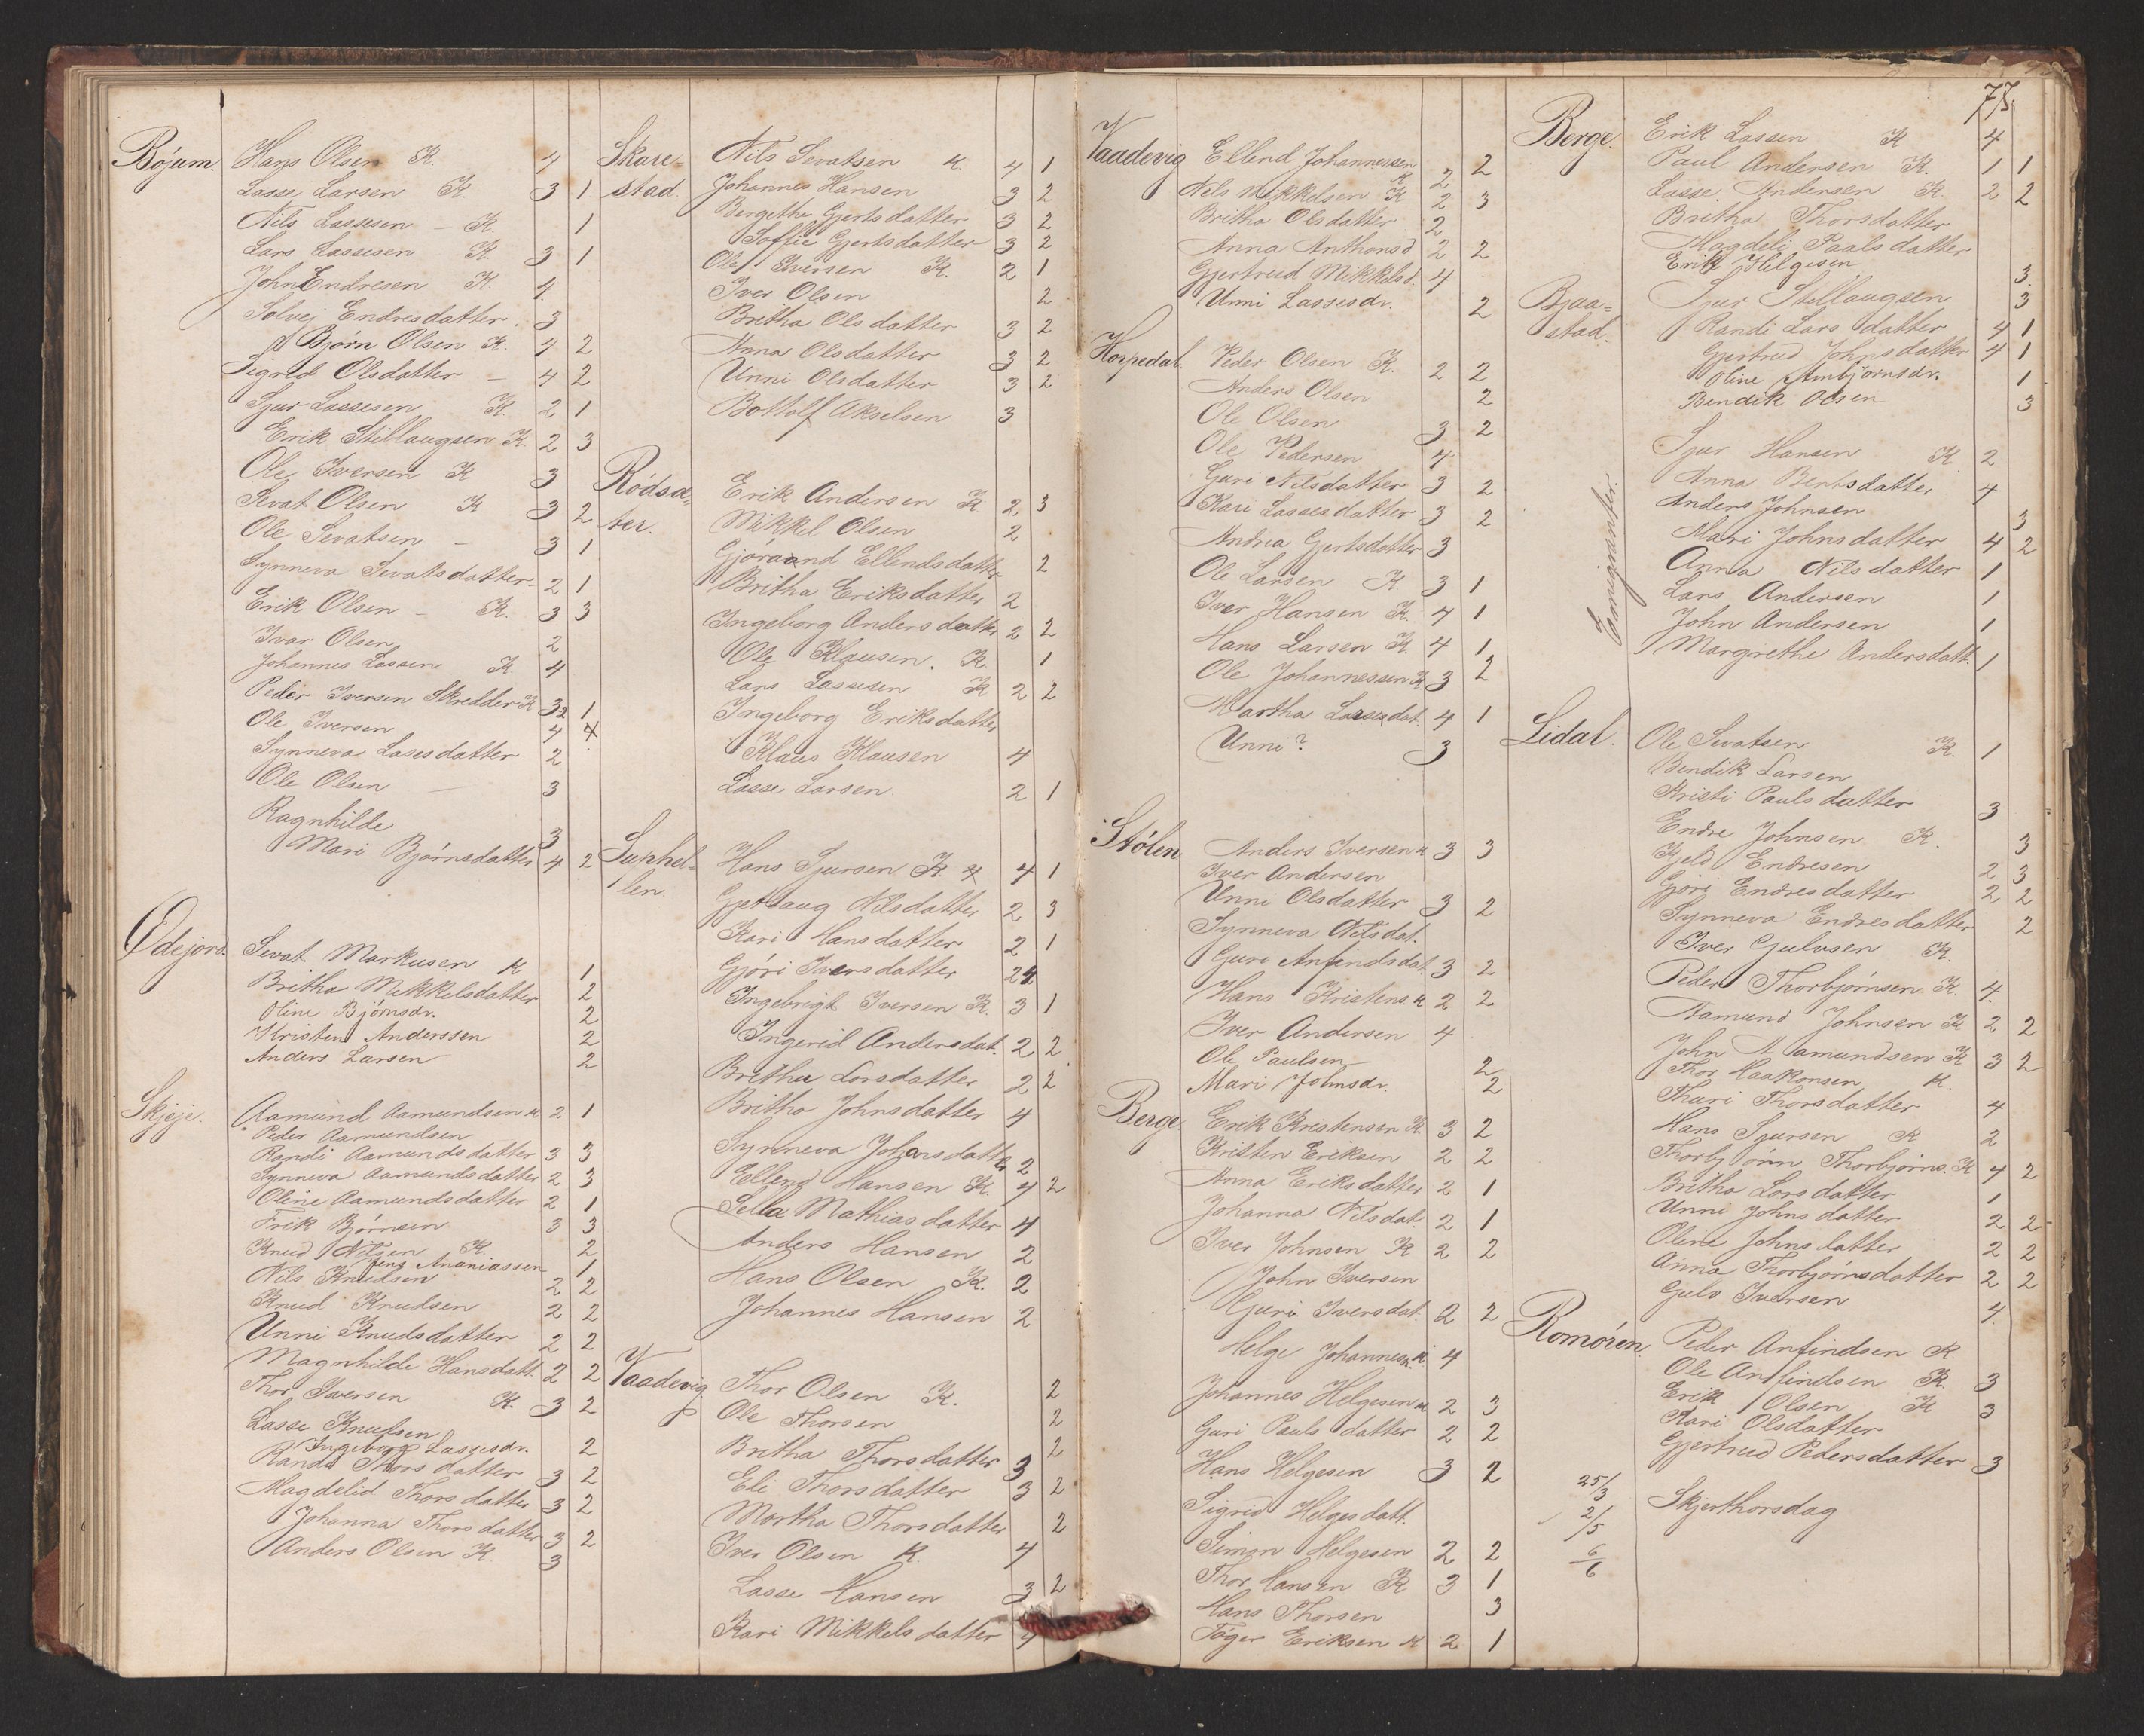 Bøjum. Hans Olsen K. 4
Lasse Larsen K. 3 1
Nils Lassesen – K. 1
Lars Lassesen K 3 1
John Endresen K. 4
Solvej Endresdatter. 3
Bjørn Olsen K. 4 2
Sigrid Olsdatter – 4 2
Sjur Lassesen K. 2 1
Erik Stillaugsen K. 2 3
Ole Iversen K 3
Sevat Olsen K 3 2
Ole Sevatsen – 3 1
Synneva Sevatsdatter – 2 1
Erik Olsen – K. 3 3
Ivar Olsen 2
Johannes Lassen K. 4
Peder Iversen Skredder K 32 1
Ole Iversen 4 4
Synneva Lasesdatter 2
Ole Olsen – 3
Ragnhilde 3
Mari Bjørnsdatter 4 2
Ødejord. Sevat Markusen K 1
Britha Mikkelsdatter 2
Oline Bjørnsdr. 2
Kristen Anderssen 2
Anders Larsen 2
Skjeje. Aamund Aamundsen K 2 1
Peder Aamundsen
Randi Aamundsdatter 3 3
Synneva Aamundsdatter 2 3
Oline Aamundsdatter 2 1
Erik Bjørnsen 3 3
Knud Nilsen K. 2
Jens Ananiassen 1
Nils Knudsen 2 2
Knud Knudsen 2 2
Unni Knudsdatter 2 2
Magnhilde Hansdatt. 2 2
Thor Iversen K. 3 2
Lasse Knudsen
Ingeborg Lassesdr. 2
Randi Thorsdatter 3 2
Magdelid Thorsdatter 3 2
Johanna Thorsdatter 3 2
Anders Olsen K. 3
Skare- Nils Sevatsen K. 4 1
stad. Johannes Hansen 3 2
Bergethe Gjertsdatter 3 2
Soffie Gjertsdatter 3 2
Ole Iversen K. 2 1
Iver Olsen 2
Britha Olsdatter 3 2
Anna Olsdatter 3 2
Unni Olsdatter 3 2
Bottolf Akselsen 3
Rødsæ- Erik Andersen K 2 3
ter. Mikkel Olsen 2
Gjøraand Ellendsdatter 2
Britha Eriksdatter 2
Ingeborg Andersdatter 2 2
Ole Klausen. K. 1
Lars Lassesen K 2 2
Ingeborg Eriksdatter
Klaus Klausen 4
Lasse Larsen 2 1
Suphel- Hans Sjursen K. 4 1
len. Gjertaug Nilsdatter 2 3
Kari Hansdatter 2 1
Gjøri Iversdatter 2 4
Ingebrigt Iversen K. 3 1
Ingerid Andersdat. 2 2
Britha Larsdatter 2 2
Britha Johnsdatter 4
Synneva Johansdatter 2
Ellend Hansen K. 4 2
Sella Mathiasdatter 4
Anders Hansen 2
Hans Olsen K. 2
Johannes Hansen 2
Vaadevig Thor Olsen K. 2
Ole Thorsen 2
Britha Thorsdatter 3 2
Eli Thorsdatter 3 2
Martha Thorsdatter 2
Iver Olsen K. 4
Lasse Hansen 3 2
Kari Mikkelsdatter 4
Vaadevig Ellend Johannessen K 2 2
Nils Mikkelsen K 2 3
Britha Olsdatter 2
Anna Anthonsd 2 2
Gjertrud Mikkelsd. 4
Unni Lassesdr. 2
Horpedal Peder Olsen K. 2 2
Anders Olsen 2
Ole Olsen 3 2
Ole Pedersen 4
Guri Nilsdatter 3 2
Kari Lassesdatter 3 2
Andrea Gjertsdatter 3
Ole Larsen K 3 1
Iver Hansen K. 4 1
Hans Larsen K. 4 1
Ole Johannessen K 3 2
Martha Larsesdat. 4 1
Unni? 3
Stølen Anders Iversen K 3 3
Iver Andersen
Unni Olsdatter 3 2
Synneva Nilsdat.
Guri Anfindsdat. 3 2
Hans Kristens. K 2 2
Iver Andersen 4
Ole Paulsen 2
Mari Johnsdr. 2
Berge Erik Kristensen K 3 2
Kristen Eriksen 2 2
Anna Eriksdatter 2 1
Johanna Nilsdat 2 1
Iver Johnsen K 2 2
John Iversen
Guri Iversdat. 2 2
Helge Johannes. K 4
Johannes Helgesen K 2 3
Guri Paulsdatter 2 2
Hans Helgesen 3 2
Sigrid Helgesdatt.
Simon Helgesen 2 2
Thor Hansen K 3 1
Hans Thorsen 3
Tøger Eriksen K 2 1
77.
Berge. Erik Lassen K 4
Paul Andersen K. 1 1
Lasse Andersen K. 2 2
Britha Thorsdatter
Magdeli Paalsdatter
Erik Helgesen 3.
Bjaa- Sjur Stillaugsen 3
stad. Randi Larsdatter 4 1
Gjertrud Johnsdatter 4 1
Oline Arnbjørnsdr. 1
Bendik Olsen 3
Emigranter.
Sjur Hansen K 2
Anna Bentsdatter 4
Anders Johnsen 3
Mari Johnsdatter 4 2
Anna Nilsdatter 1
Lars Andersen 1
John Andersen 1
Margrethe Andersdatt. 1
Lidal. Ole Sevatsen K. 1
Bendik Larsen
Kristi Paulsdatter 3
Endre Johnsen K. 3
Kjeld Endresen 2 3
Gjøri Endresdatter 2 2
Synneva Endresdatter 2
Iver Gulvsen K.
Peder Thorbjørnsen K. 4.
Aamund Johnsen K 2 2
John Aamundsen K 3 2
Thor Haakonsen K.
Thuri Thorsdatter 4
Hans Sjursen K 2
Thorbjørn Thorbjørns. K 4 2
Britha Larsdatter 1
Unni Johnsdatter 2 2
Oline Johnsdatter 2 2
Anna Thorbjørnsdatter 2 2
Gulv Iversen 4.
Romøren. Peder Anfindsen K
Ole Anfindsen K. 3
Erik Olsen K 3
Kari Olsdatter
Gjertrud Pedersdatter 3
25/3 Skjerthorsdag
2/5
6/6